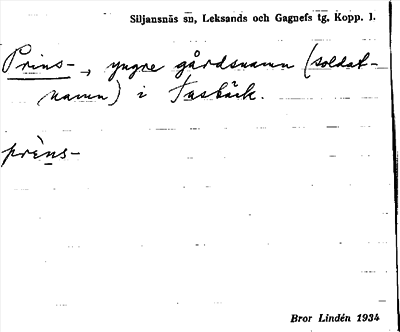 Siljansnäs sn, Leksands och Gagnefs tg, Kopp. l.
Prins-, yngre gårdsnamn (soldat-
namn) i Tasbäck.
prèns-
Bror Lindén 1934